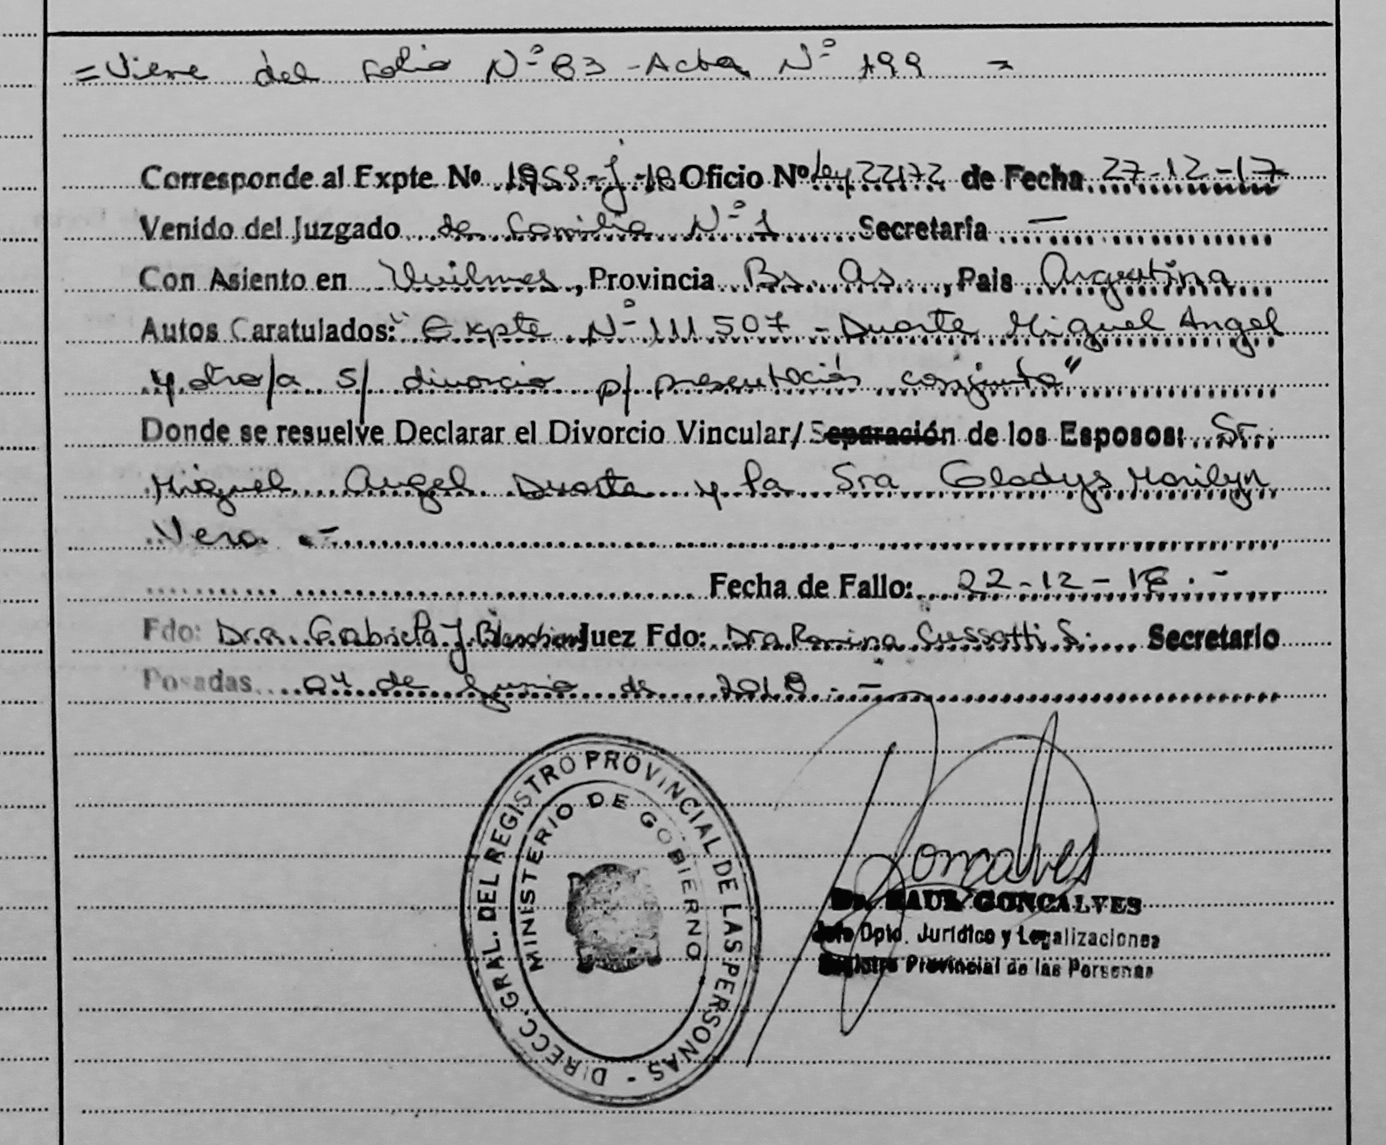 =Viene del folio Nº 83 - Acta Nº 199 =
Corresponde al Expte Nº 1959-J-18 Oficio Nº Ley 22172 de Fecha 27-12-17
Venido del Juzgado de Familia Nº 1 Secretaría —
Con Asiento en Quilmes, Provincia Bs. As., Pais Argentina
Autos Caratulados: "Expte Nº 111507 - Duarte Miguel Angel
y otro/a s/ divorcio p/ presentación conjunta"
Donde se resuelve Declarar el Divorcio Vincular/ Separación de los Esposos: Sr.
Miguel Angel Duarte y la Sra Gladys Marilyn
Vera .-
Fecha de Fallo: 22-12-16.-
Fdo: Dra. Gabriela J. Juez Fdo: Dra Romina Cussotti S. Secretario
Posadas 04 de Junio de 2018.-
DIRECC. GRAL. DEL REGISTRO PROVINCIAL DE LAS PERSONAS -
MINISTERIO DE GOBIERNO
Goncalves
Dr. RAUL GONCALVES
Jefe Dpto. Jurídico y Legalizaciones
Registro Provincial de las Personas